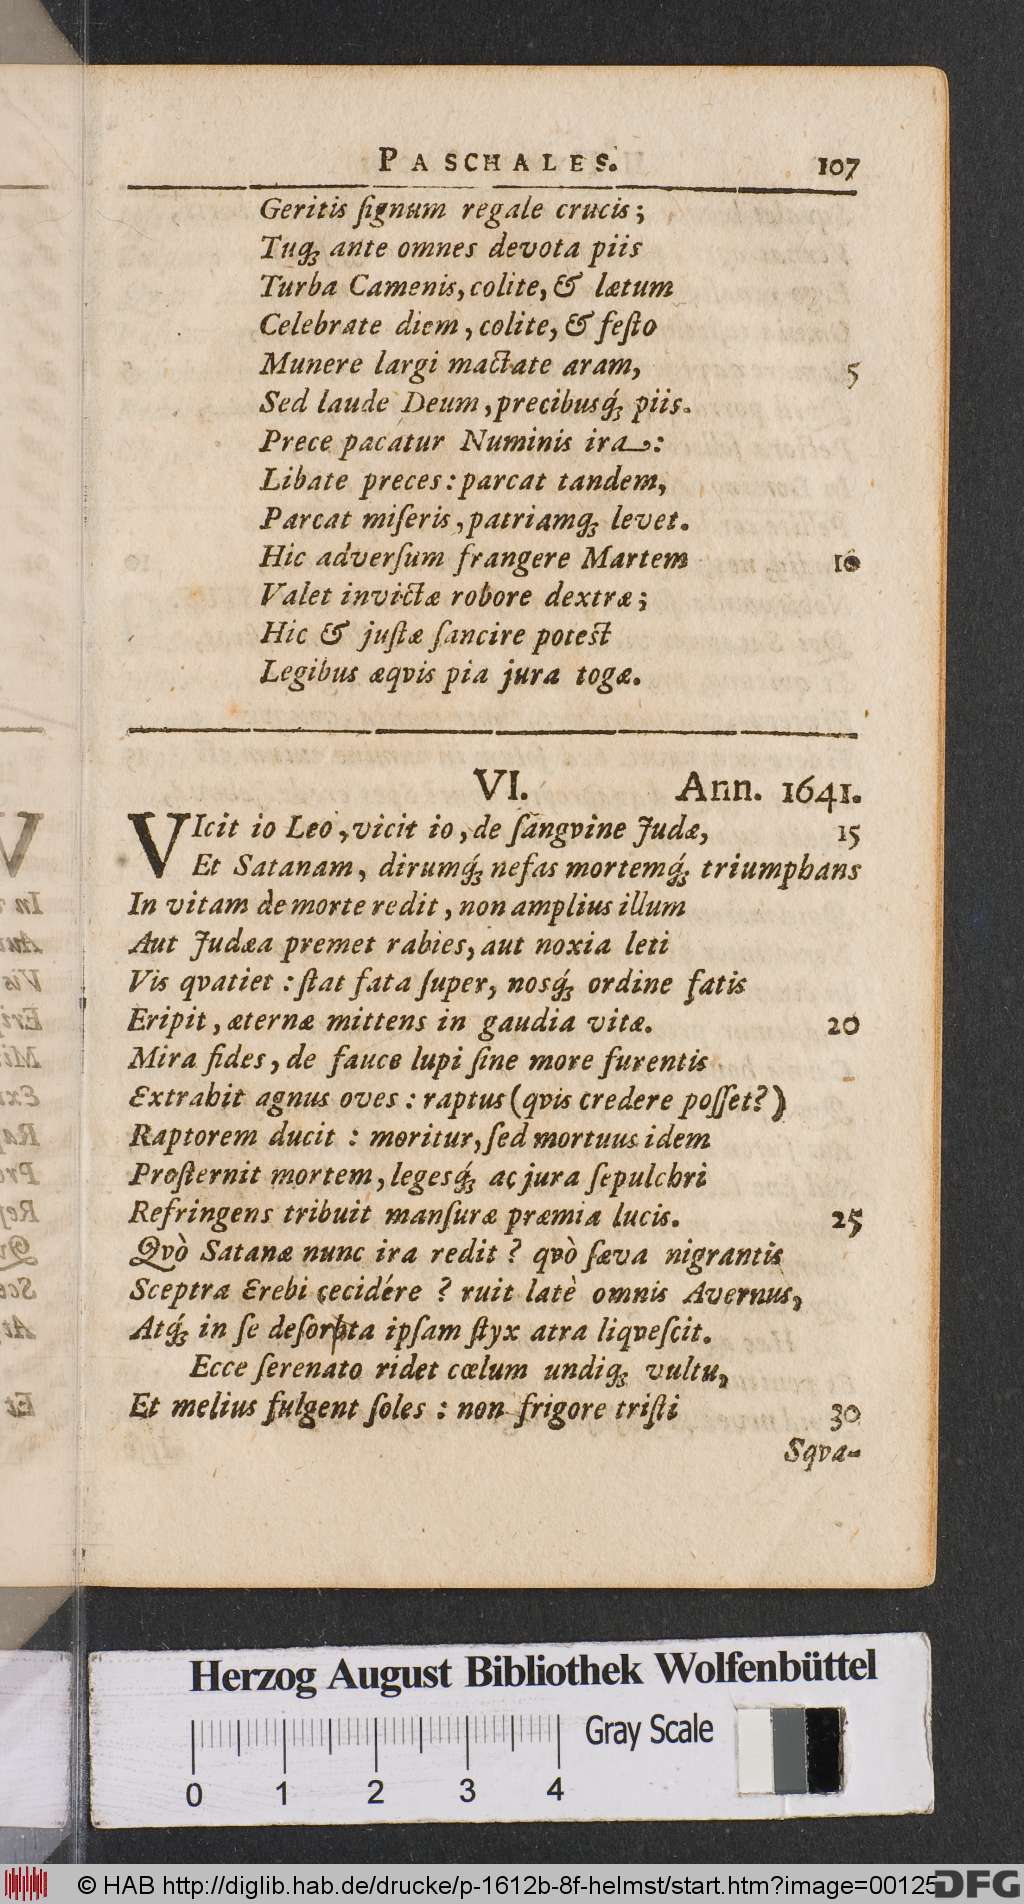 PASCHALES. 107
Geritis ſignum regale crucis;
Tuq́ꝫ ante omnes devota piis
Turba Camenis, colite, & lætum
Celebrate diem, colite, & feſto
Munere largi mactate aram, 5
Sed laude Deum, precibusq́ꝫ piis.
Prece pacatur Numinis ira:
Libate preces: parcat tandem,
Parcat miſeris, patriamq́ꝫ levet.
Hic adverſum frangere Martem 10
Valet invictæ robore dextræ;
Hic & juſtæ ſancire potest
Legibus æqvis pia jura togæ.
VI. Ann. 1641.
VIcit io Leo, vicit io, de ſangvine Judæ, 15
Et Satanam, dirumq́ꝫ nefas mortemq́ꝫ triumphans
In vitam de morte redit, non amplius illum
Aut Judæa premet rabies, aut noxia leti
Vis qvatiet: ſtat fata ſuper, nosq́ꝫ ordine fatis
Eripit, æternæ mittens in gaudia vitæ. 20
Mira fides, de fauce lupi ſine more furentis
Extrahit agnus oves: raptus (qvis credere poſſet?)
Raptorem ducit: moritur, ſed mortuus idem
Proſternit mortem, legesq́ꝫ ac jura ſepulchri
Refringens tribuit manſuræ præmia lucis. 25
Qvò Satanæ nunc ira redit? qvò ſæva nigrantis
Sceptra Erebi cecidére? ruit latè omnis Avernus,
Atq́ꝫ in ſe deſorpta ipſam ſtyx atra liqveſcit.
Ecce ſerenato ridet cœlum undiqꝫ vultu,
Et melius fulgent ſoles: non frigore triſti 30
Sqva-
Herzog August Bibliothek Wolfenbüttel
Gray Scale
0 1 2 3 4
© HAB http://diglib.hab.de/drucke/p-1612b-8f-helmst/start.htm?image=00125
DFG